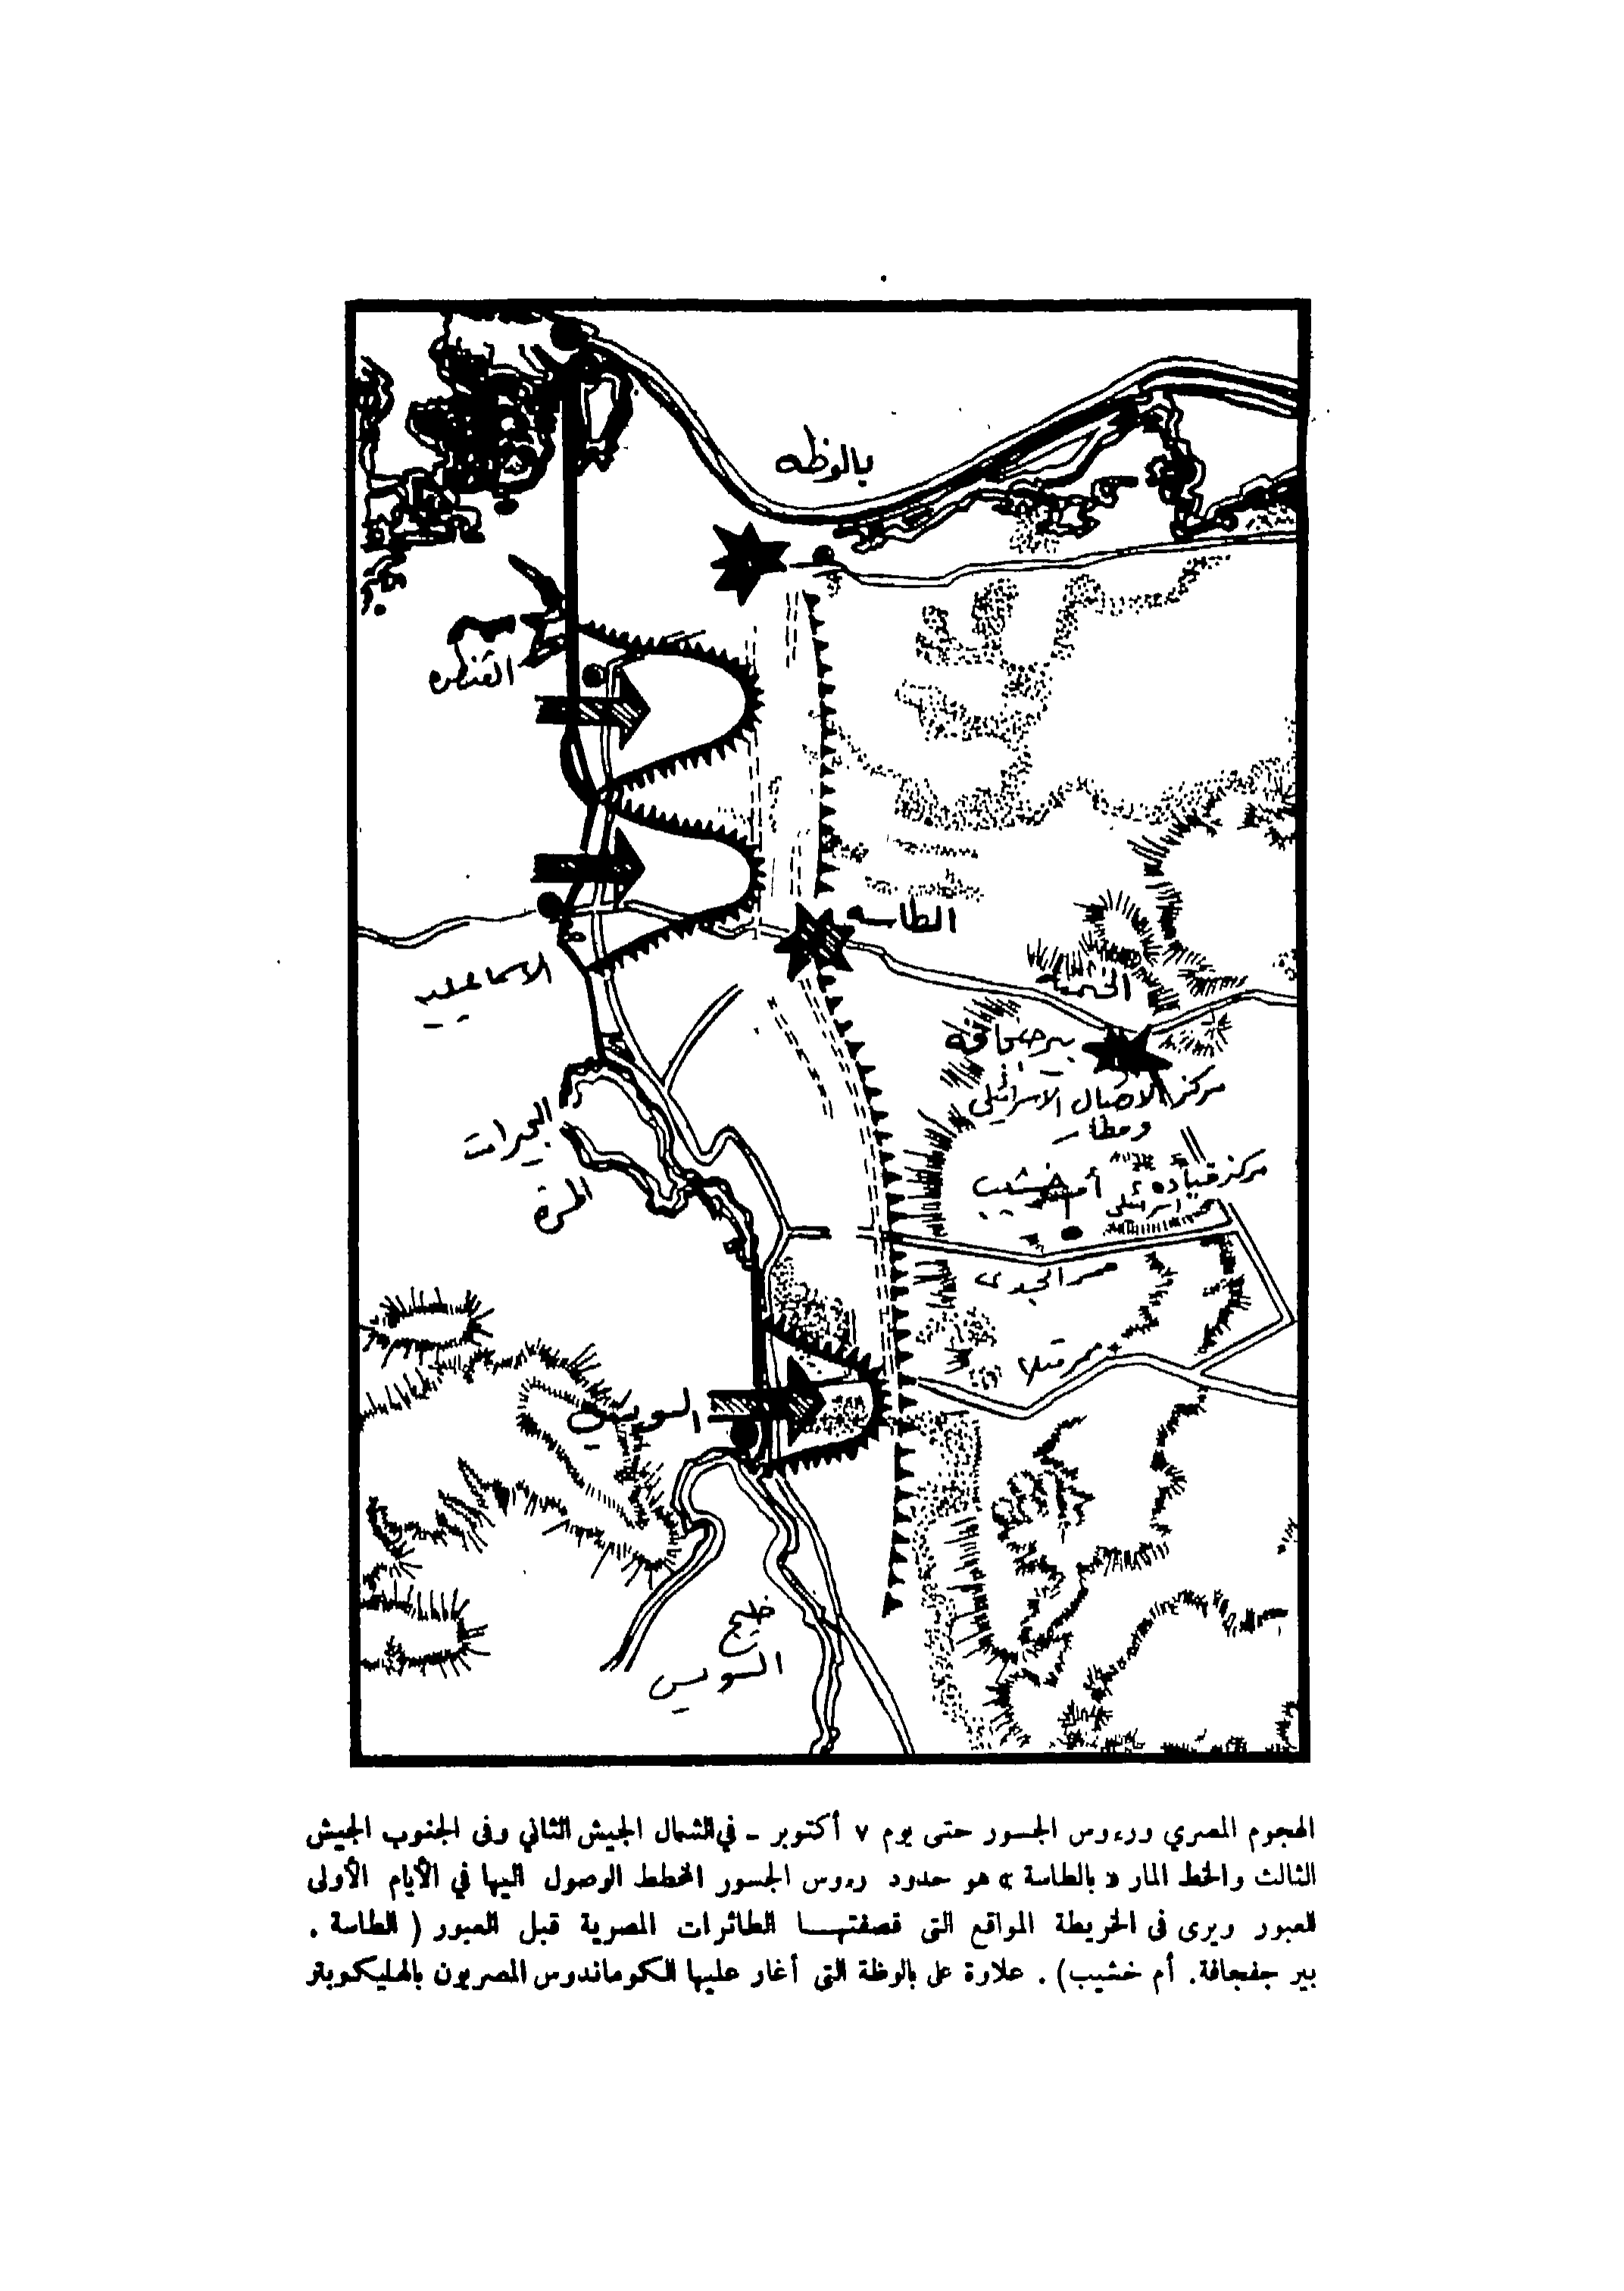 بالوظه
القنطره
الطاسه
الاسماعيليه
بير جفجافه
مركز الاتصال الاسرائيلى
ومطار
البحيرات
المرة
مركز قيادة
اسرائيلى
أم خشيب
ممر الجدى
ممر متلا
السويس
خليج
السويس
الهجوم المصري ورءوس الجسور حتى يوم ٧ أكتوبر - في الشمال الجيش الثاني وفى الجنوب الجيش
الثالث والخط المار « بالطاسة » هو حدود رءوس الجسور المخطط الوصول اليها في الأيام الأولى
للعبور ويرى فى الخريطة المواقع التى قصفتهـــا الطائرات المصرية قبل العبور ( الطاسة .
بير جفجافة. أم خشيب) . علاوة على بالوظة التى أغار عليها الكوماندوس المصريون بالهليكوبتر